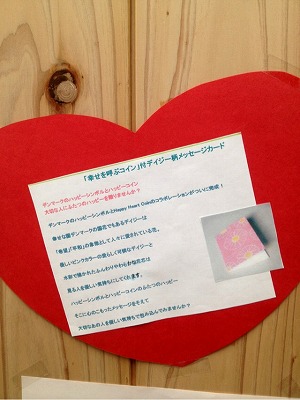 「幸せを呼ぶコイン」付デイジー柄メッセージカード
デンマークのハッピーシンボルとハッピーコイン
大切な人にふたつのハッピーを贈りませんか？
デンマークのハッピーシンボルとHappy Heart Coinのコラボレーションがついに完成！
幸せな国デンマークの国花でもあるデイジーは
「幸運」「平和」の象徴として人々に愛されている花。
優しいピンクカラーの愛らしく可憐なデイジーと
水彩で描かれたふんわりやわらかな花芯は
見る人を優しい気持ちにしてくれます。
ハッピーシンボルとハッピーコインのふたつのハッピー
そこに心のこもったメッセージをそえて
大切なあの人を優しい気持ちで包み込んでみませんか？